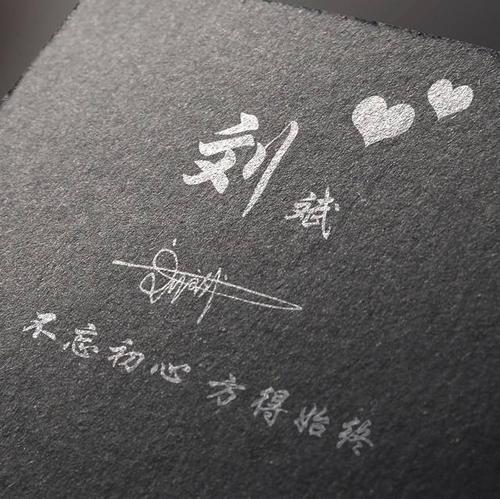 刘斌
不忘初心 方得始终